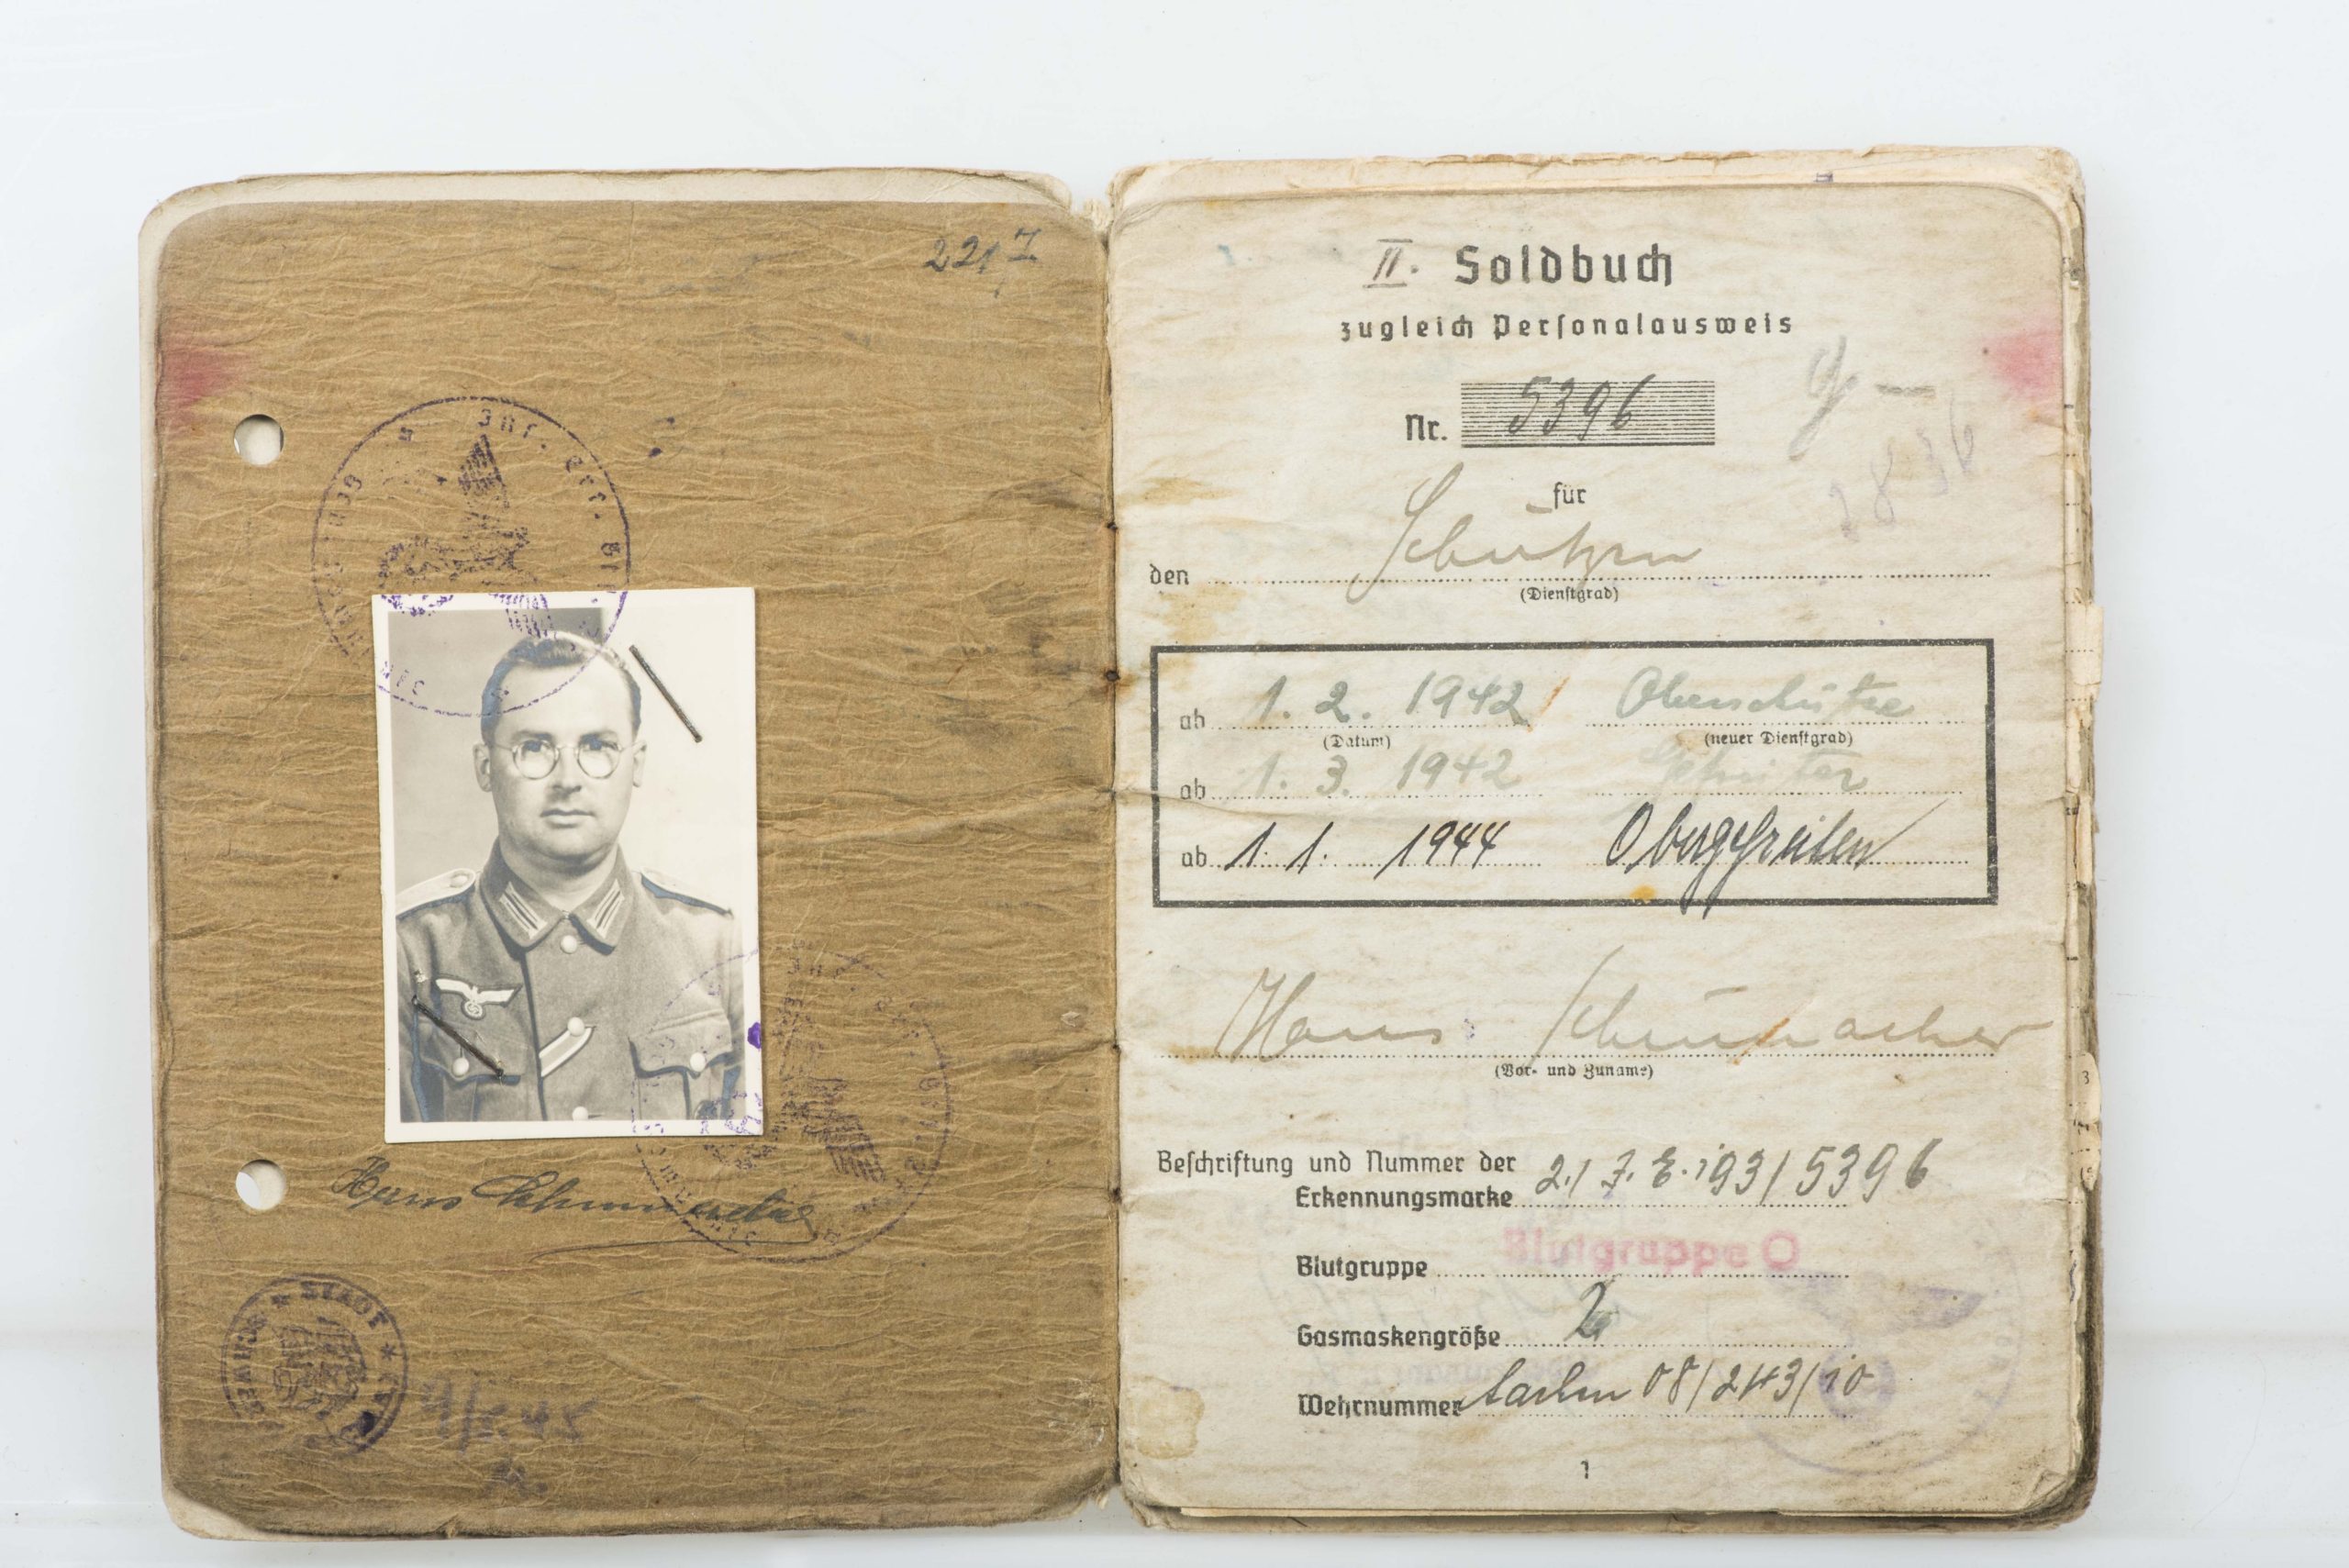 2217
Hans Schumacher
STADT
4/5.45
II. Soldbuch
zugleich Personalausweis
Nr. 5396
für
den Schützen
(Dienstgrad)
ab 1. 2. 1942 Oberschütze
(Datum) (neuer Dienstgrad)
ab 1. 3. 1942 Gefreiter
ab 1. 1. 1944 Obergefreiten
Hans Schumacher
(Vor- und Zuname)
Beschriftung und Nummer der
Erkennungsmarke 2./J.E.193/5396
Blutgruppe Blutgruppe O
Gasmaskengröße 2
Wehrnummer Aachen 08/243/10
1